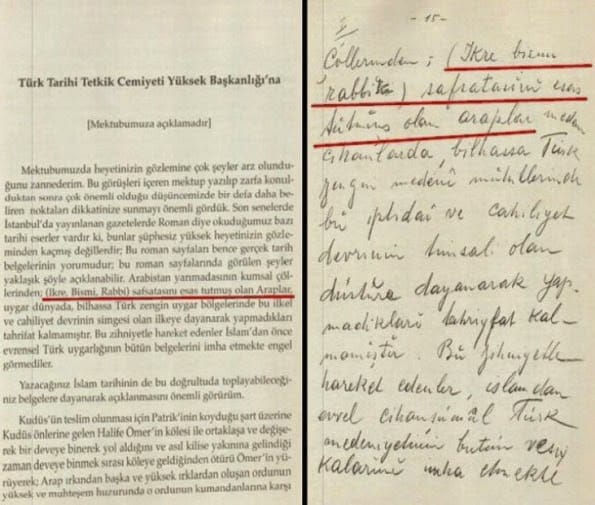 Türk Tarihi Tetkik Cemiyeti Yüksek Başkanlığı'na
[Mektubumuza açıklamadır]
Mektubumuzda heyetinizin gözlemine çok şeyler arz olundu-
ğunu zannederim. Bu görüşleri içeren mektup yazılıp zarfa konul-
duktan sonra çok önemli olduğu düşüncemizde bir defa daha be-
liren noktaları dikkatinize sunmayı önemli gördük. Son senelerde
İstanbul'da yayınlanan gazetelerde Roman diye okuduğumuz bazı
tarihi eserler vardır ki, bunlar şüphesiz yüksek heyetinizin gözle-
minden kaçmış değillerdir; Bu roman sayfaları bence gerçek tarih
belgelerinin yorumudur; bu roman sayfalarında görülen şeyler
yaklaşık şöyle açıklanabilir. Arabistan yarımadasının kumsal çöl-
lerinden; (Ikre, Bismi, Rabbi) safsatasını esas tutmuş olan Araplar,
uygar dünyada, bilhassa Türk zengin uygar bölgelerinde bu ilkel
ve cahiliyet devrinin simgesi olan ilkeye dayanarak yapmadıkları
tahrifat kalmamıştır. Bu zihniyetle hareket edenler İslam'dan önce
evrensel Türk uygarlığının bütün belgelerini imha etmekte engel
görmediler.
Yazacağınız İslam tarihinin de bu doğrultuda toplayabileceği-
niz belgelere dayanarak açıklanmasını önemli görürüm.
Kudüs'ün teslim olunması için Patrik'inin koyduğu şart üzerine
Kudüs önlerine gelen Halife Ömer'in kölesi ile ortaklaşa ve değişe-
rek bir deveye binerek yol aldığını ve asıl kilise yakınına gelindiği
zaman deveye binmek sırası köleye geldiğinden ötürü Ömer'in yü-
rüyerek; Arap ırkından başka ve yüksek ırklardan oluşan ordunun
yüksek ve muhteşem huzurunda o ordunun kumandanlarına karşı
- 15 -
Çöllerinden; (Ikre bismi
rabbike) safsatasını esas
tutmuş olan araplar meden
cihanlarda, bilhassa Türk
zengin medenî muhitlerinde
bu iptidaî ve cahiliyet
devrinin timsali olan
düstûra dayanarak yap-
madıkları tahrifat kal-
mamıştır. Bu zihniyetle
hareket edenler, islamdan
evvel cihanşümûl Türk
medeniyetinin bütün vesi-
kalarını imha etmekte